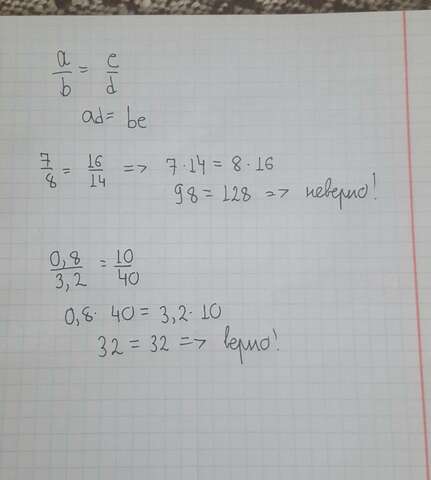 a/b = c/d
ad = bc
7/8 = 16/14 => 7·14 = 8·16
98 = 128 => неверно!
0,8/3,2 = 10/40
0,8· 40 = 3,2· 10
32 = 32 => верно!